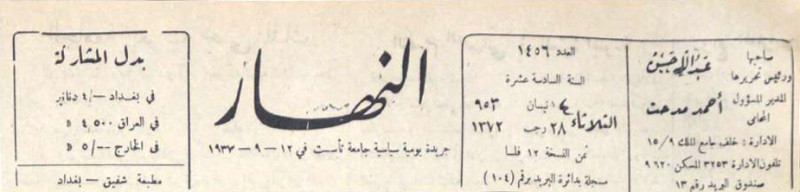 صاحبها
ورئيس تحريرها
المدير المسؤول
أحمد مدحت
المحامي
الادارة : خلف جامع الملك ١٥/٩
تلفون الادارة ٣٢٥٣ المسكن ٩٦٢٠
صندوق البريد رقم ١٣
العدد ١٤٥٦
السنة السادسة عشرة
الثلاثاء
٤ نيسان ٩٥٣
٢٨ رجب ١٣٧٢
ثمن النسخة ١٢ فلسا
مسجلة بدائرة البريد برقم (١٠٤)
النهار
جريدة يومية سياسية جامعة تأسست في ١٢ - ٩ - ١٩٣٧
بدل المشاركة
في بغداد -/٤ دنانير
في العراق ٤٥٠٠ »
في الخارج -/٥٠ »
مطبعة شفيق - بغداد